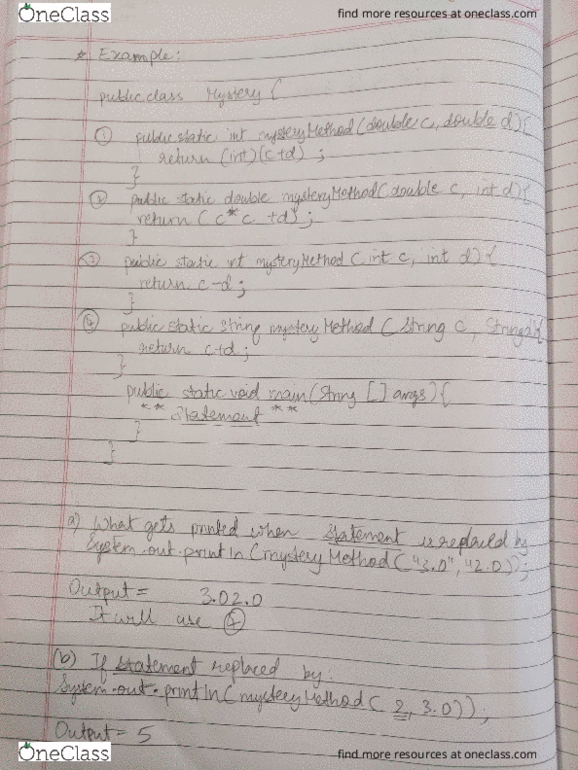 OneClass
find more resources at oneclass.com
* Example:
public class Mystery {
① public static int mysteryMethod (double c, double d){
return (int)(c+d) ;
}
② public static double mysteryMethod( double c, int d){
return ( c*c +d) ;
}
③ public static int mysteryMethod ( int c, int d) {
return c-d ;
}
④ public static String mysteryMethod ( String c, String d){
return c+d ;
}
public static void main (String [] args) {
** Statement **
}
}
a) What gets printed when statement is replaced by
System.out.println (mysteryMethod ( "3.0", "2.0 ));
Output = 3.02.0
It will use ④
(b) If statement replaced by:
System.out.println ( mysteryMethod ( 2, 3.0));
Output = 5
OneClass
find more resources at oneclass.com